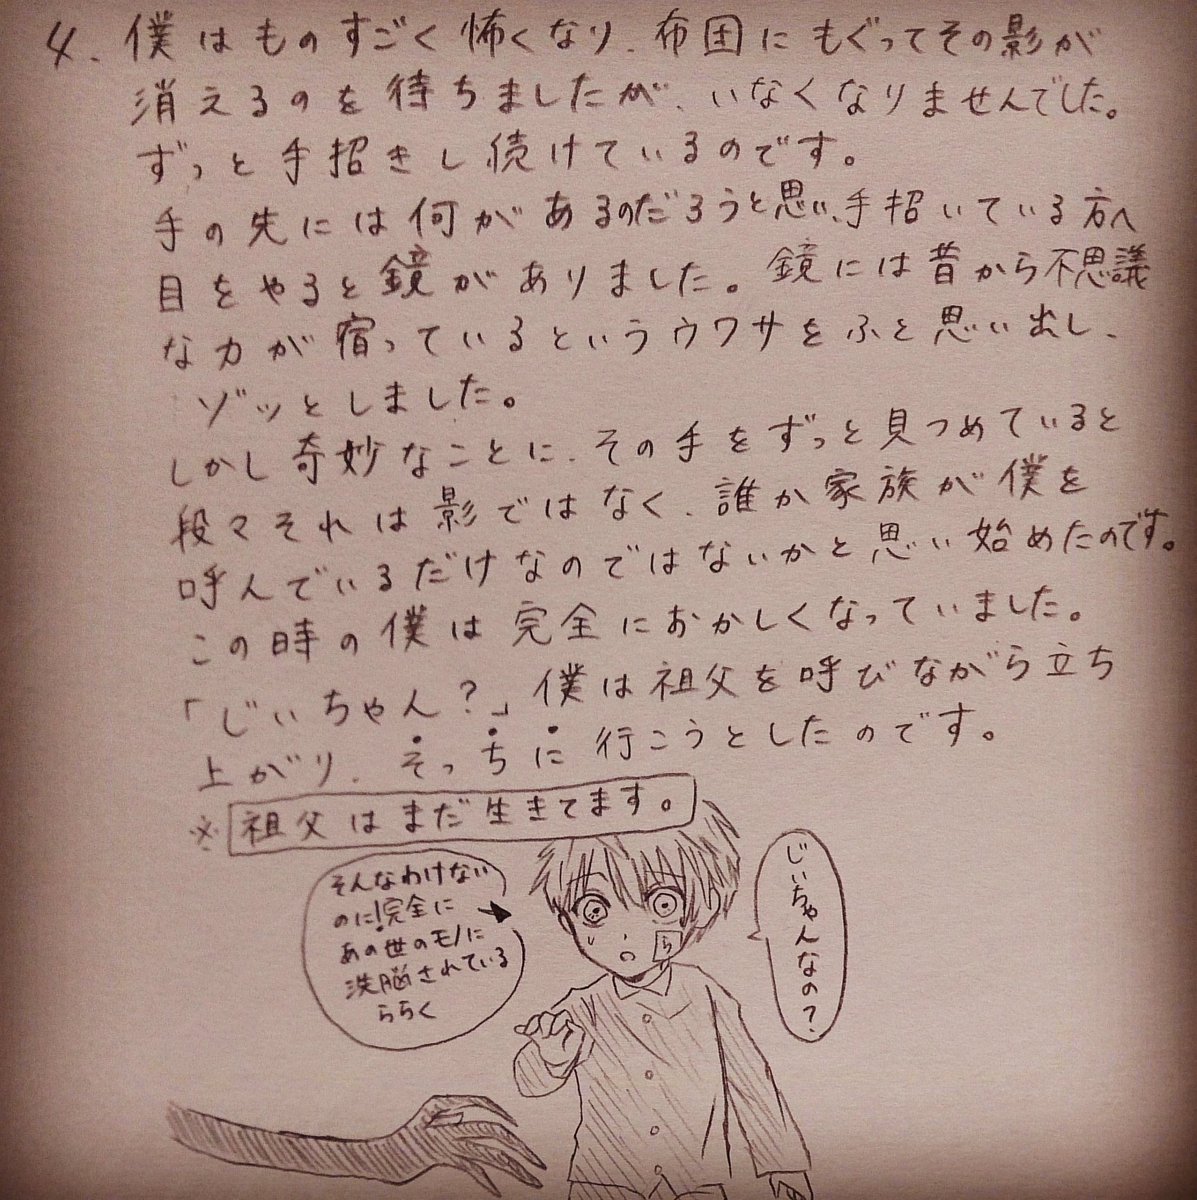 4. 僕はものすごく怖くなり、布団にもぐってその影が
消えるのを待ちましたが、いなくなりませんでした。
ずっと手招きし続けているのです。
手の先には何があるのだろうと思い、手招いている方へ
目をやると鏡がありました。鏡には昔から不思議
な力が宿っているというウワサをふと思い出し、
ゾッとしました。
しかし奇妙なことに、その手をずっと見つめていると
段々それは影ではなく、誰か家族が僕を
呼んでいるだけなのではないかと思い始めたのです。
この時の僕は完全におかしくなっていました。
「じぃちゃん？」僕は祖父を呼びながら立ち
上がり、そっちに行こうとしたのです。
※祖父はまだ生きてます。
そんなわけない
のに!完全に
あの世のモノに
洗脳されている
ららく
ら
じぃちゃんなの？